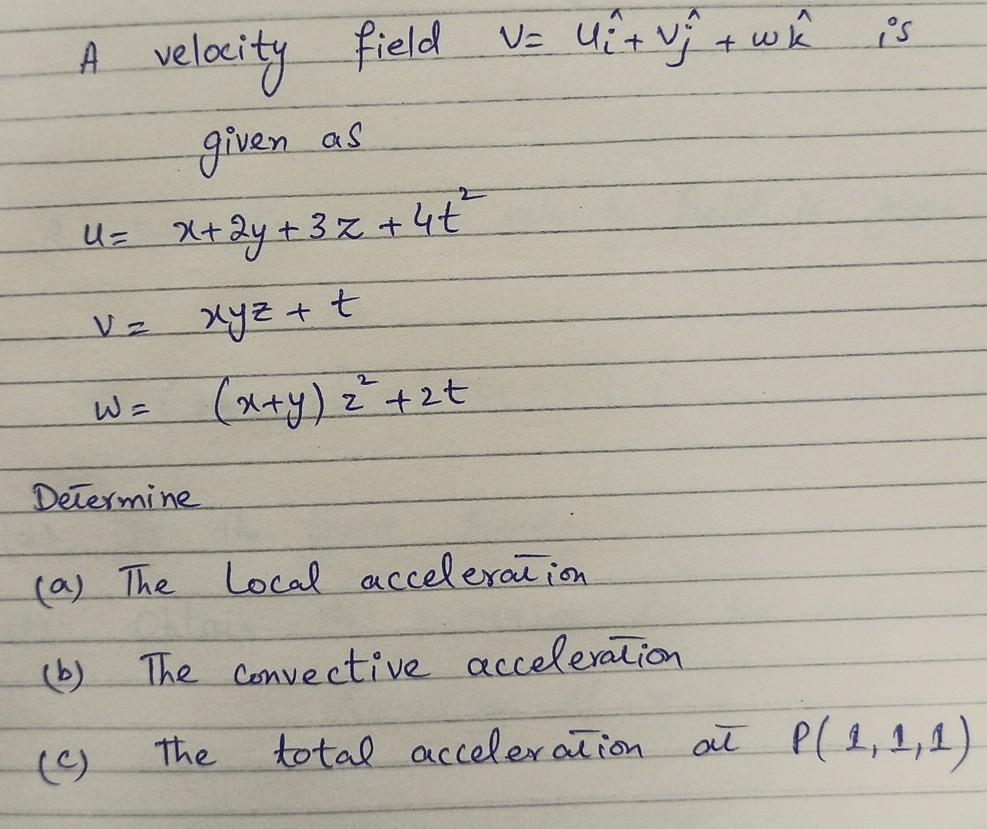 A velocity field V= uî + vĵ + wk̂ is
given as
u= x+2y+3z+4t²
v= xyz+t
w= (x+y)z²+2t
Determine
(a) The Local acceleration
(b) The convective acceleration
(c) The total acceleration at P(1,1,1)